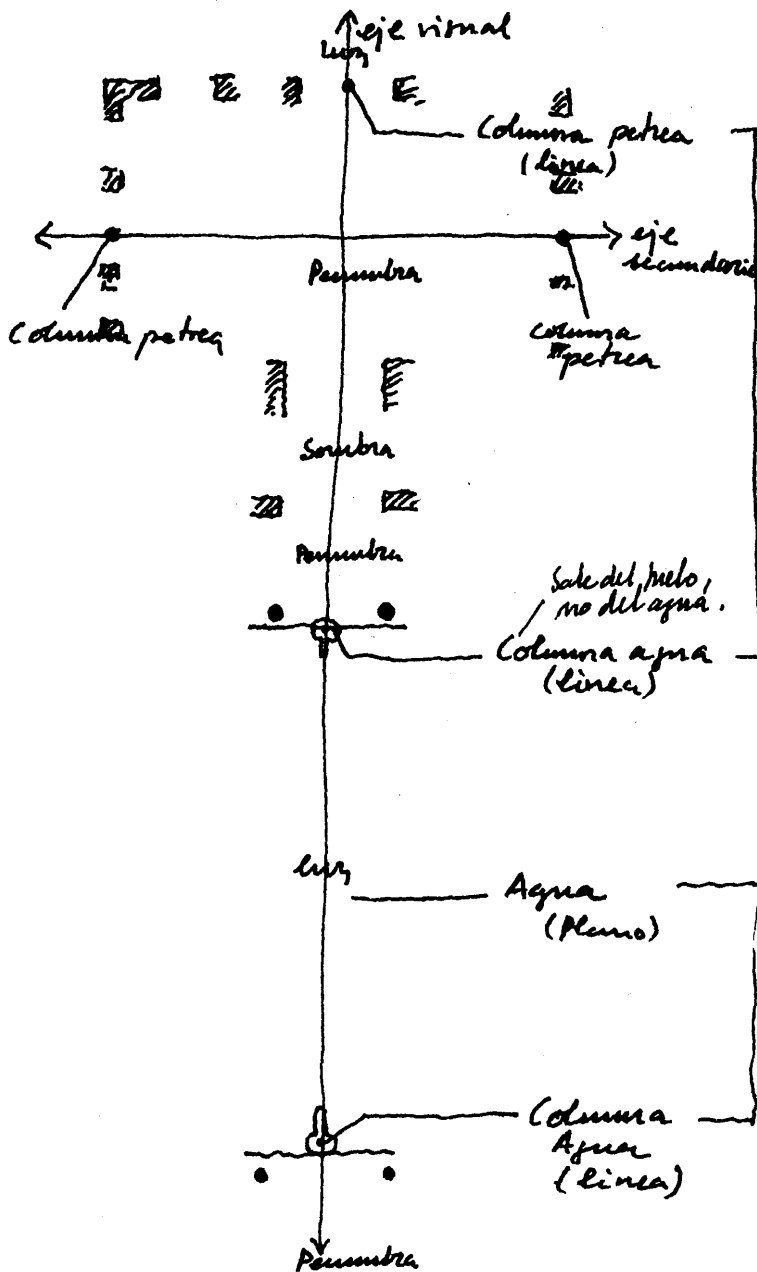 eje visual
Luz
Columna petrea
(linea)
eje
secundario
Penumbra
Columna petrea
columna
petrea
Sombra
Penumbra
Sale del suelo,
no del agua.
Columna agua
(linea)
luz
Agua
(Plano)
Columna
Agua
(linea)
Penumbra